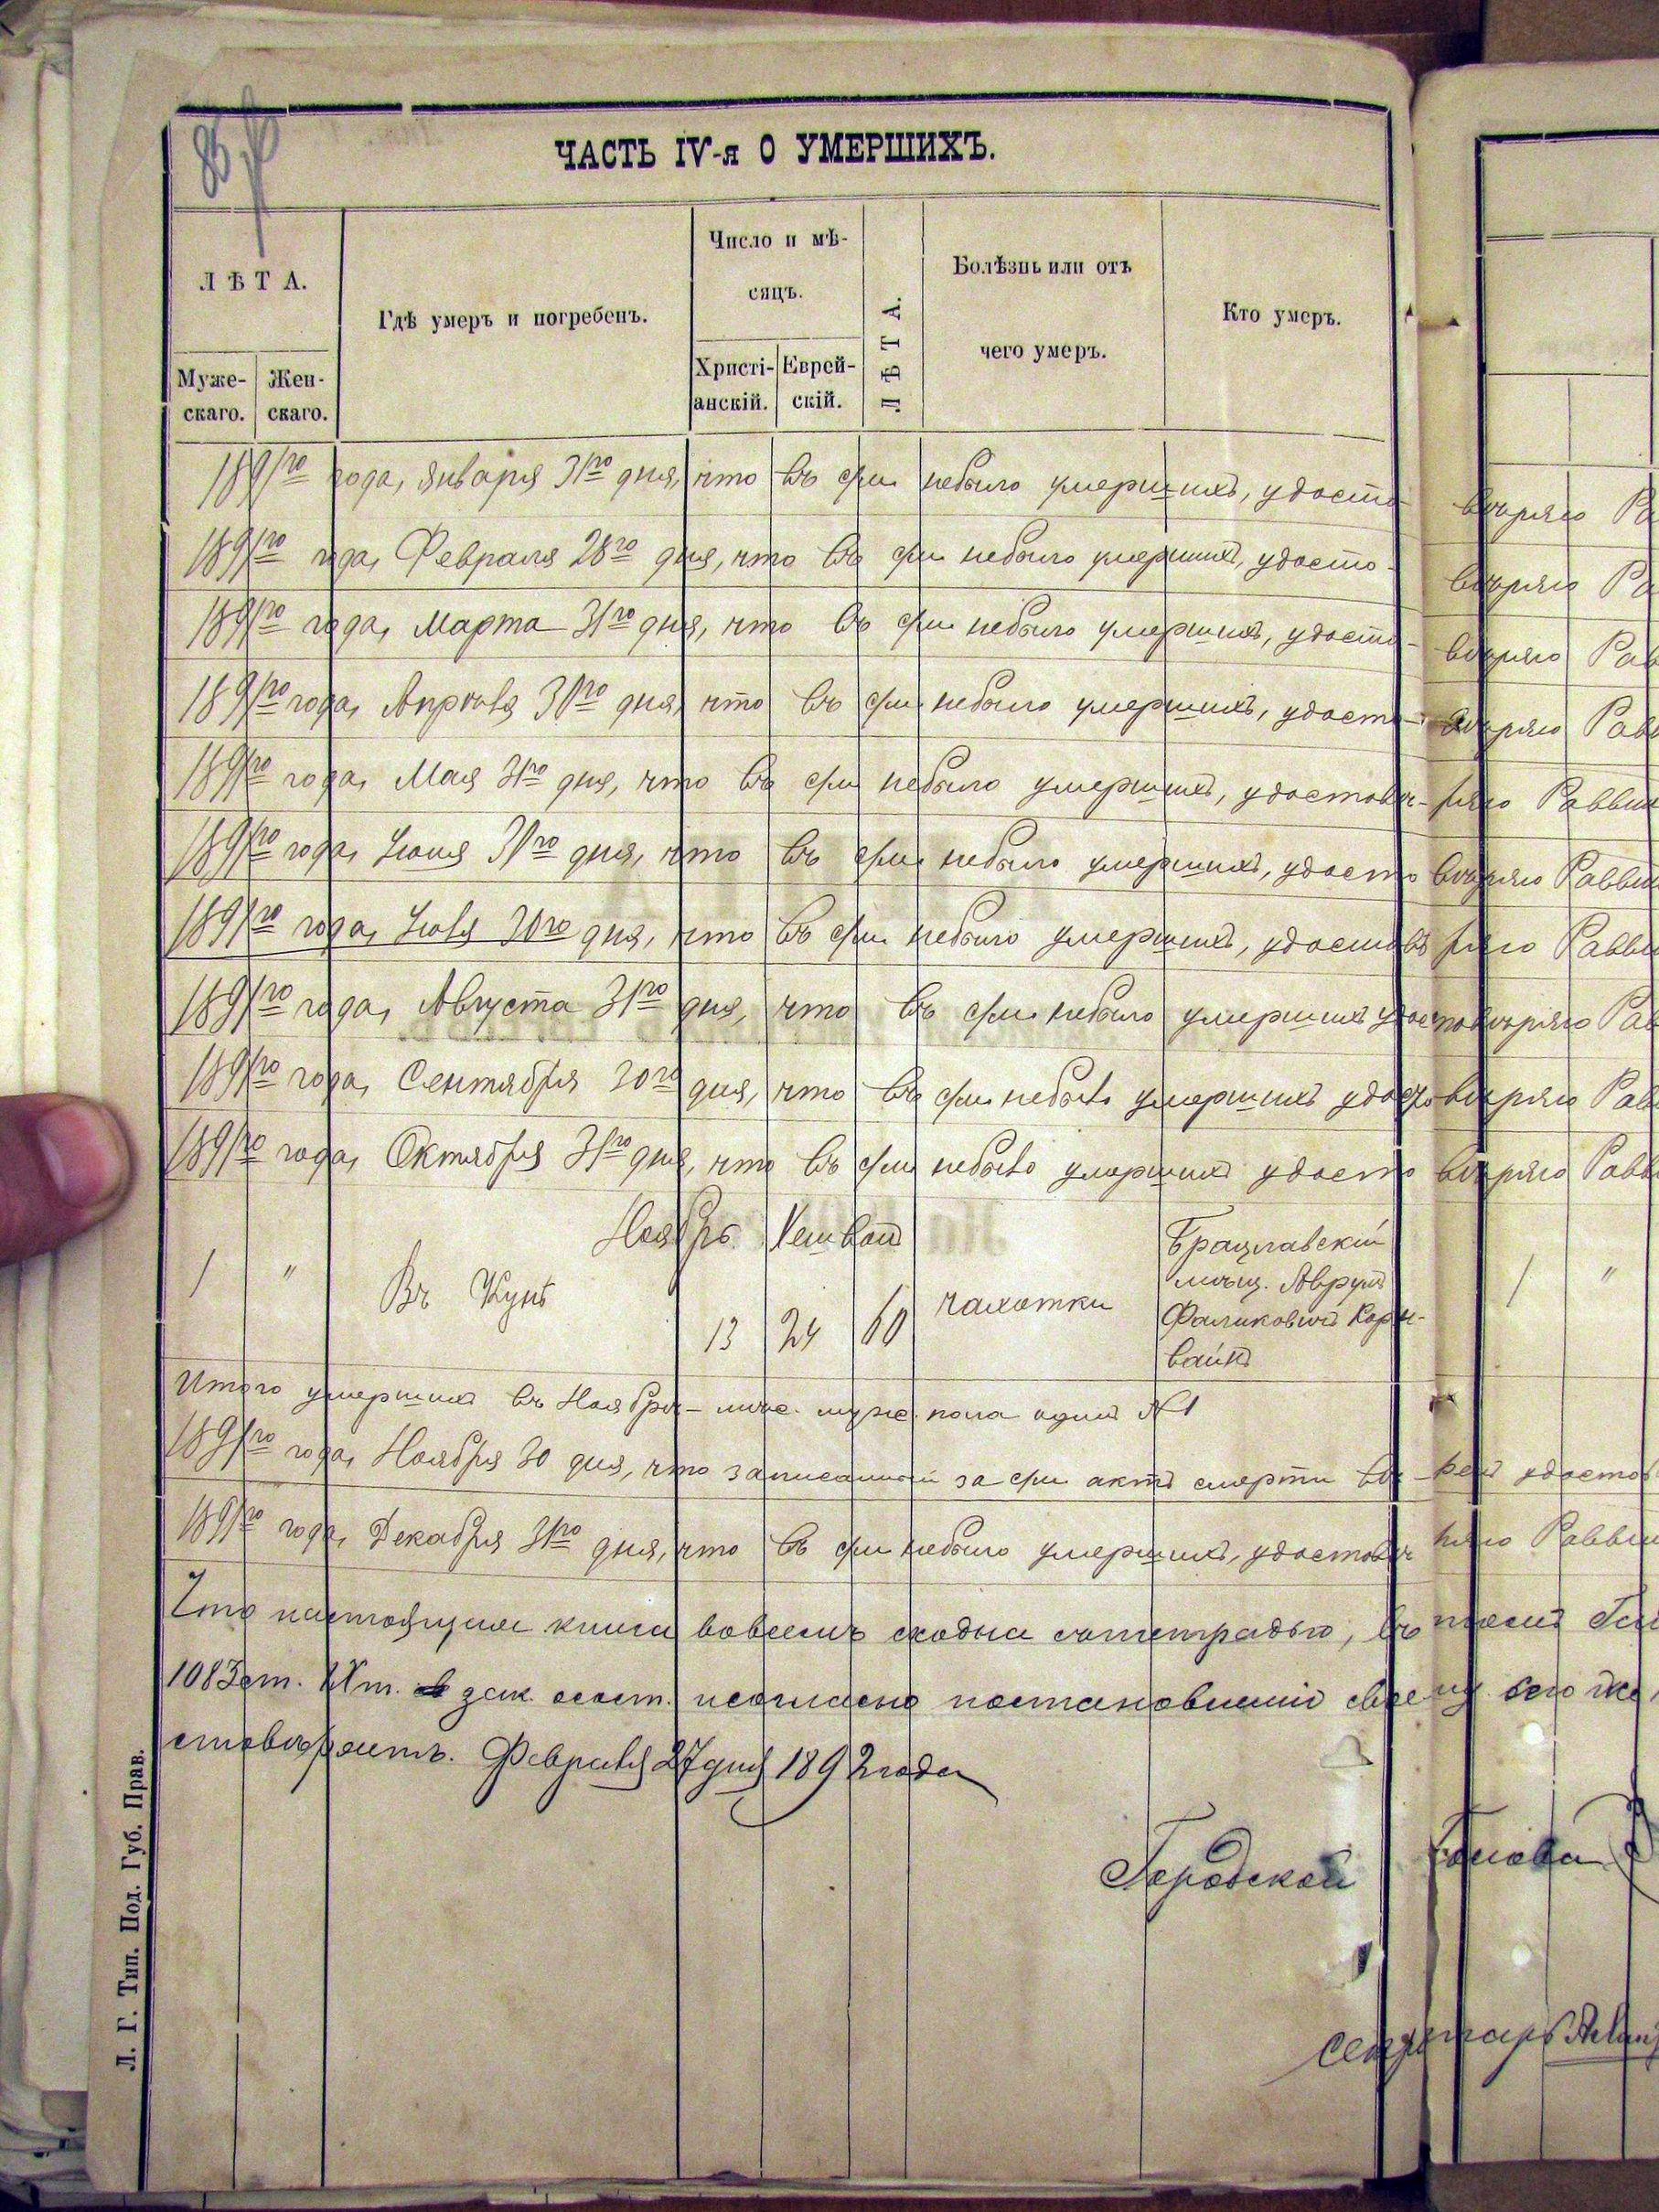 85
ЧАСТЬ IV-я О УМЕРШИХЪ.
ЛѢТА.
Муже-
скаго.
Жен-
скаго.
Гдѣ умеръ и погребенъ.
Число и мѣ-
сяцъ.
Христі-
анскій.
Еврей-
скій.
ЛѢТА.
Болѣзнь или отъ
чего умеръ.
Кто умеръ.
1891го года, Января 31го дня, что въ сем небыло умершихъ, удосто- вѣряю Ра
1891го года, Февраля 28го дня, что въ сем небыло умершихъ, удосто- вѣряю Ра
1891го года, Марта 31го дня, что въ сем небыло умершихъ, удосто- вѣряю Рав
1891го года, Апрѣля 30го дня, что въ сем небыло умершихъ, удосто- вѣряю Равв
1891го года, Мая 31го дня, что въ сем небыло умершихъ, удостовѣ- ряю Раввин
1891го года, Іюня 30го дня, что въ сем небыло умершихъ, удосто вѣряю Раввин
1891го года, Іюля 30го дня, что въ сем небыло умершихъ, удостовѣ ряю Равви
1891го года, Августа 31го дня, что въ сем небыло умершихъ удостовѣряю Рав
1891го года, Сентября 30го дня, что въ сем небыло умершихъ удосто вѣряю Рав
1891го года, Октября 31го дня, что въ сем небыло умершихъ удосто вѣряю Равв
Ноябрь. Хешван
1 " Въ Кунѣ 13 24 60 чахотки
Брацлавскій
мѣщ. Аврум
Фаликовичъ Корн-
вайнъ
1 "
Итого умершихъ въ Ноябрѣ- мѣс. муж. пола один №1
1891го года, Ноября 30 дня, что записанный за сем актъ смерти вѣ- рен удостов
1891го года, Декабря 31го дня, что въ сем небыло умершихъ, удостовѣ ряю Раввин
Что настоящая книга вовсемъ сходна стетрадью, въ томъ
1083 ст. IX т. зак. о сост. исогласно постановленію своему
стовѣряетъ. Февраля 27 дня 1892 года
Городской Голова
Секретарь
Л. Г. Тип. Под. Губ. Прав.